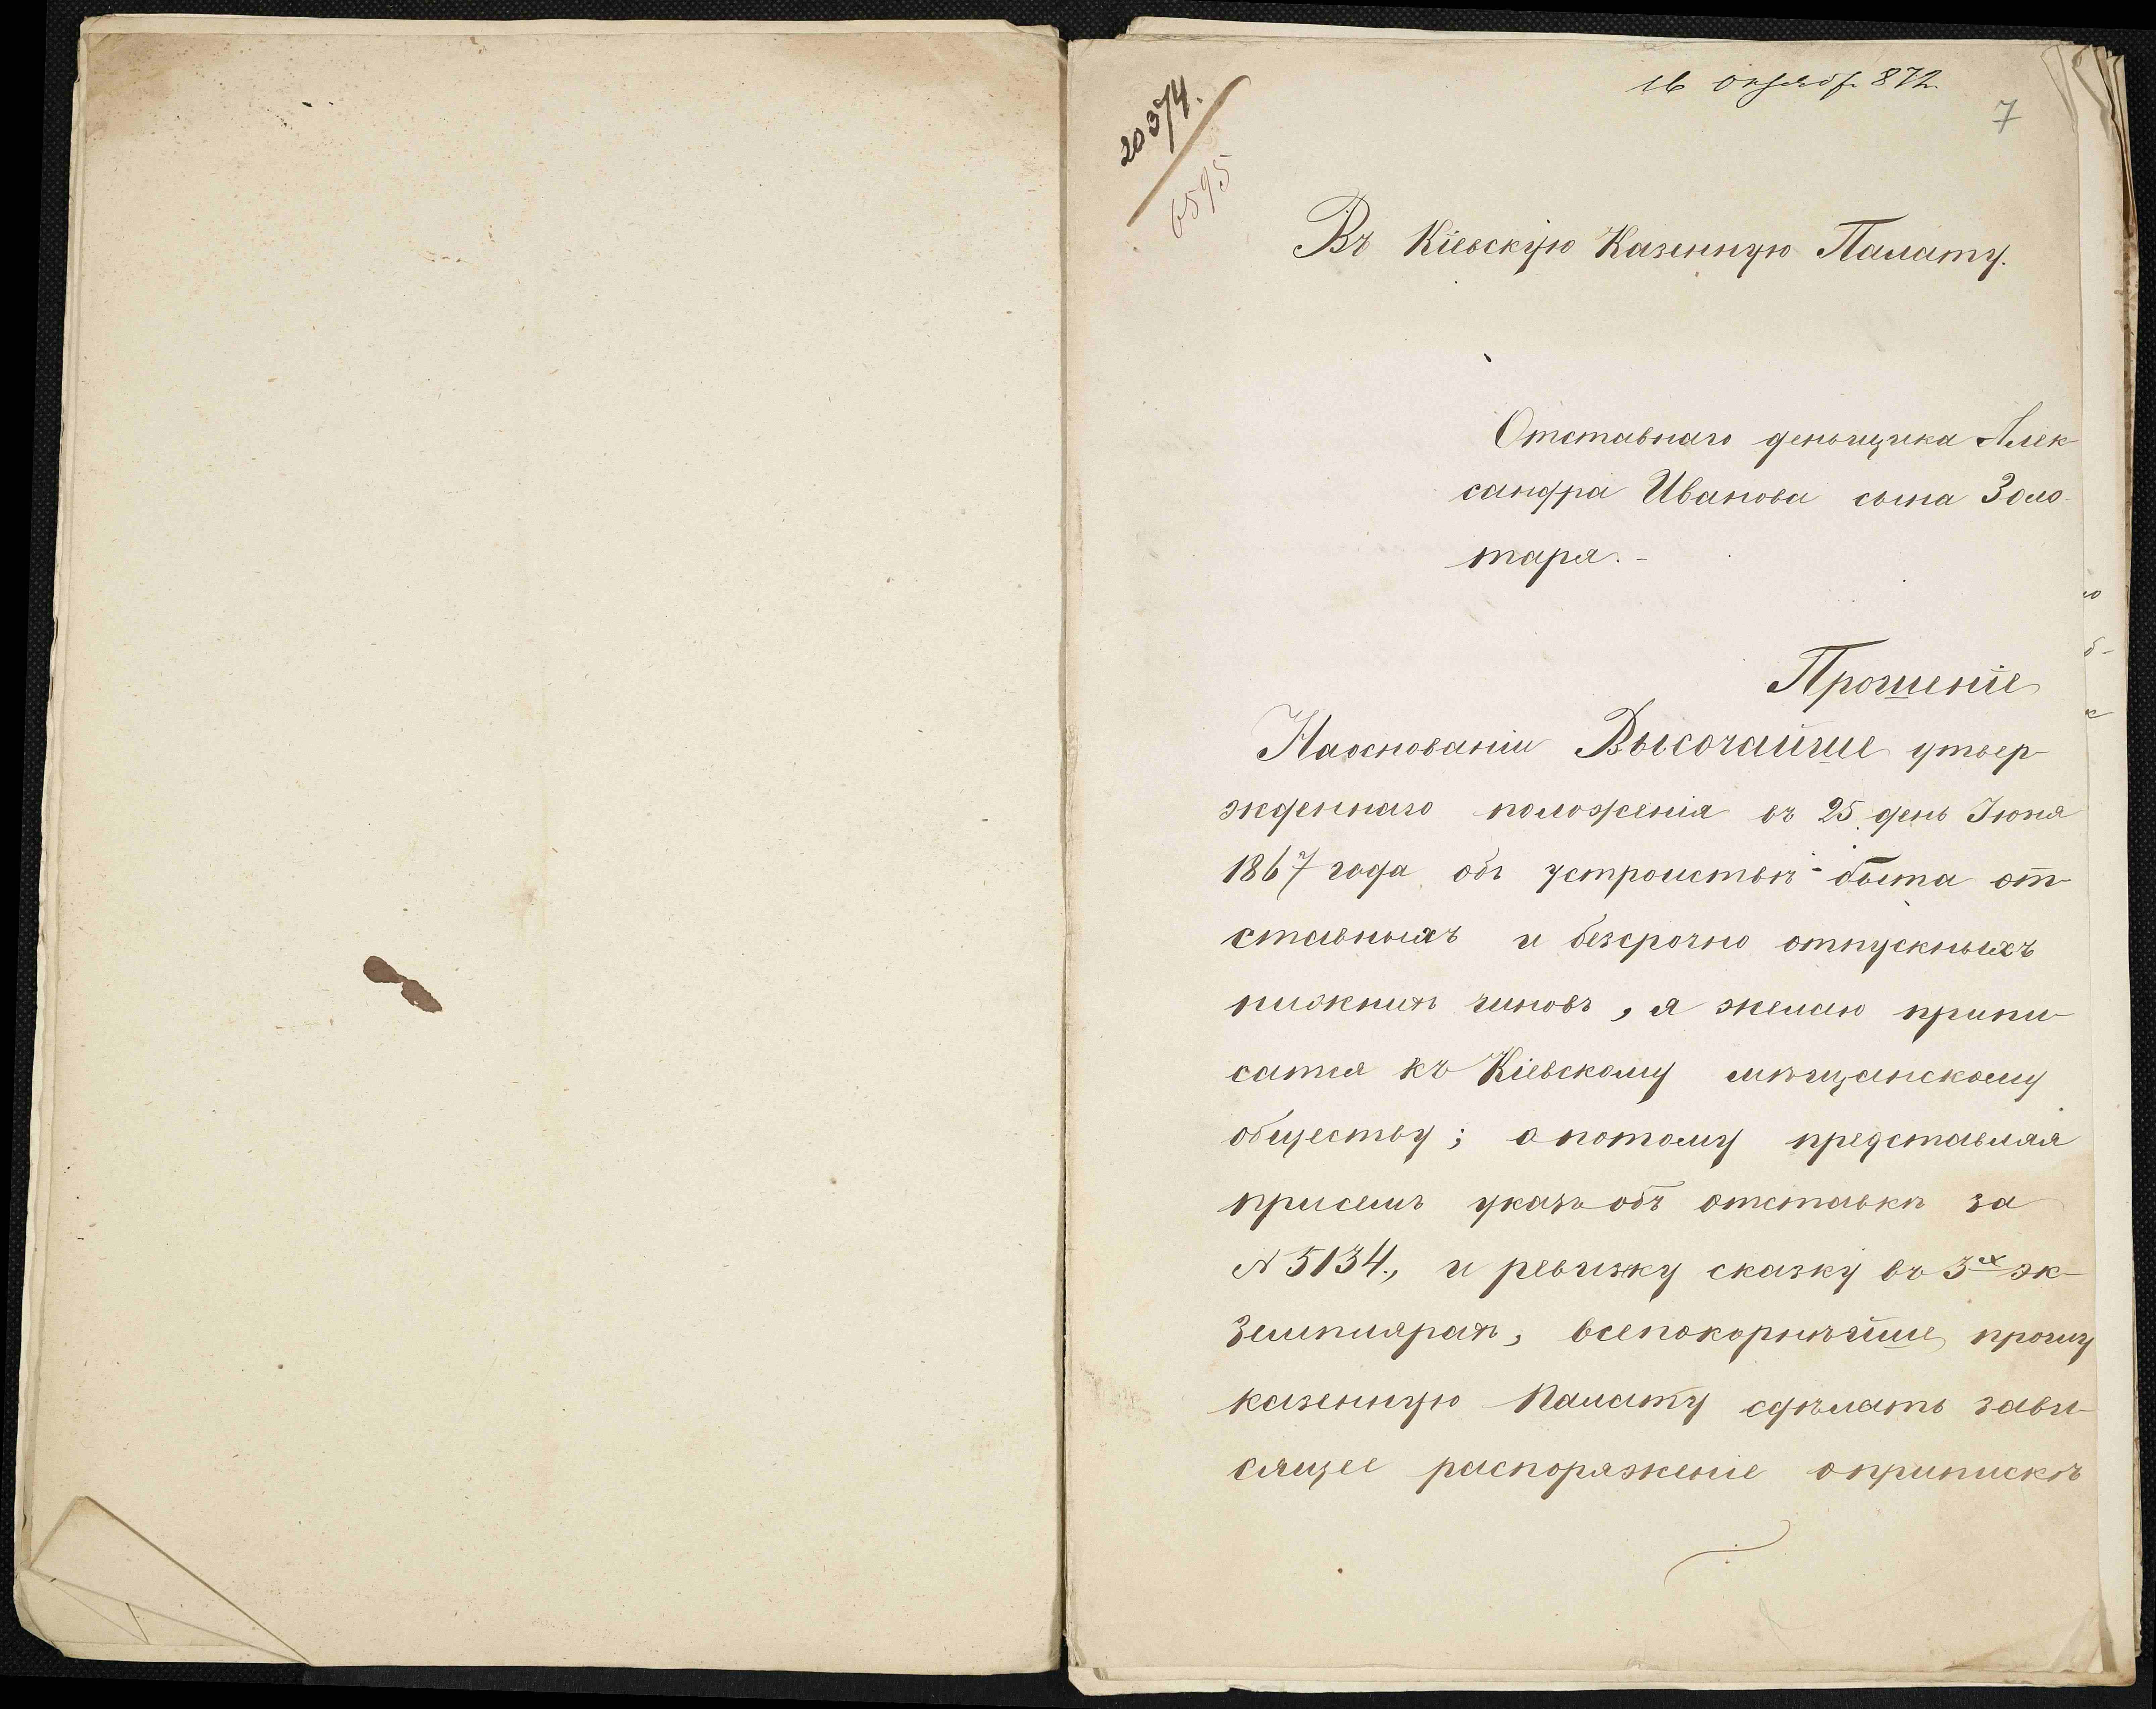 16 октяб. 872
7
20374.
6595
Въ Кіевскую Казенную Палату.
Отставнаго деньщика Алек-
сандра Иванова сына Золо-
таря.-
Прошеніе
Наоснованіи Высочайше утвер-
жденнаго положенія въ 25 день Іюня
1867 года объ устроистве быта от-
ставныхъ и безсрочно отпускныхъ
нижнихъ чиновъ, я желаю припи-
сатся къ Кіевскому мѣщанскому
обществу; а потому представляя
присемъ указъ объ отставкѣ за
№ 5134., и ревизку сказку въ 3х эк-
земплярахъ, всепокорнѣйше прошу
казенную Палату сдѣлать зави-
сящее распоряженіе о припискѣ